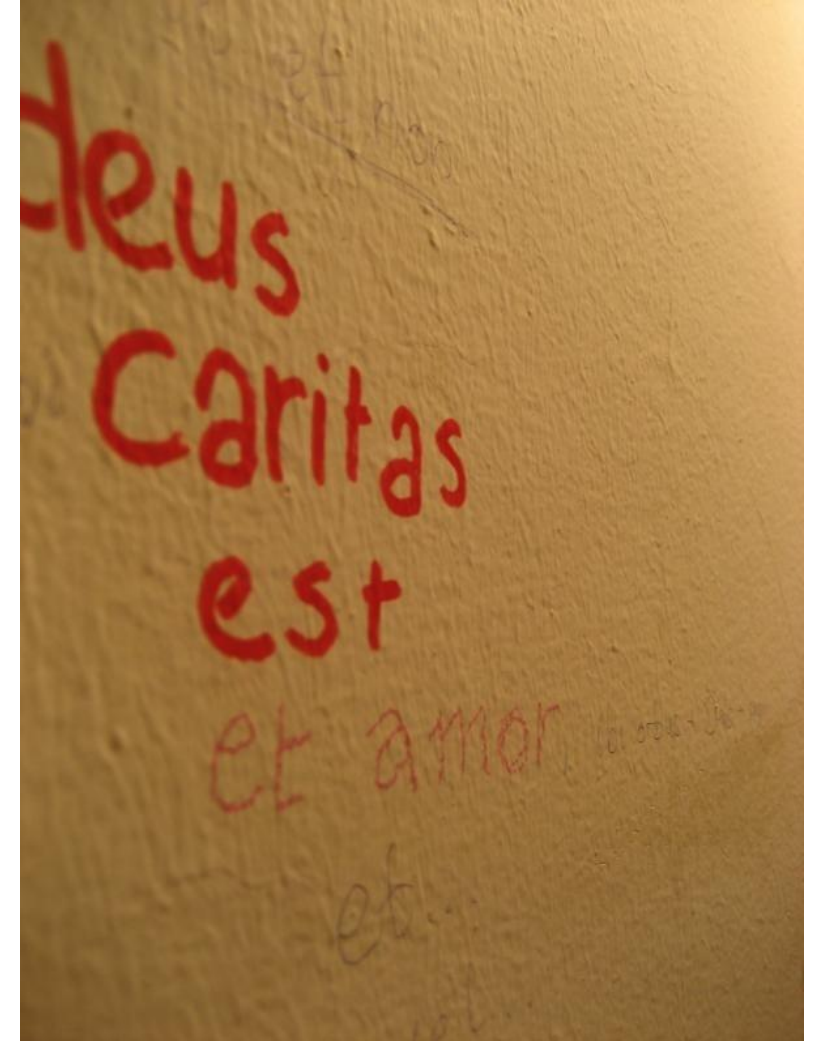 deus
caritas
est
et amor,
et...